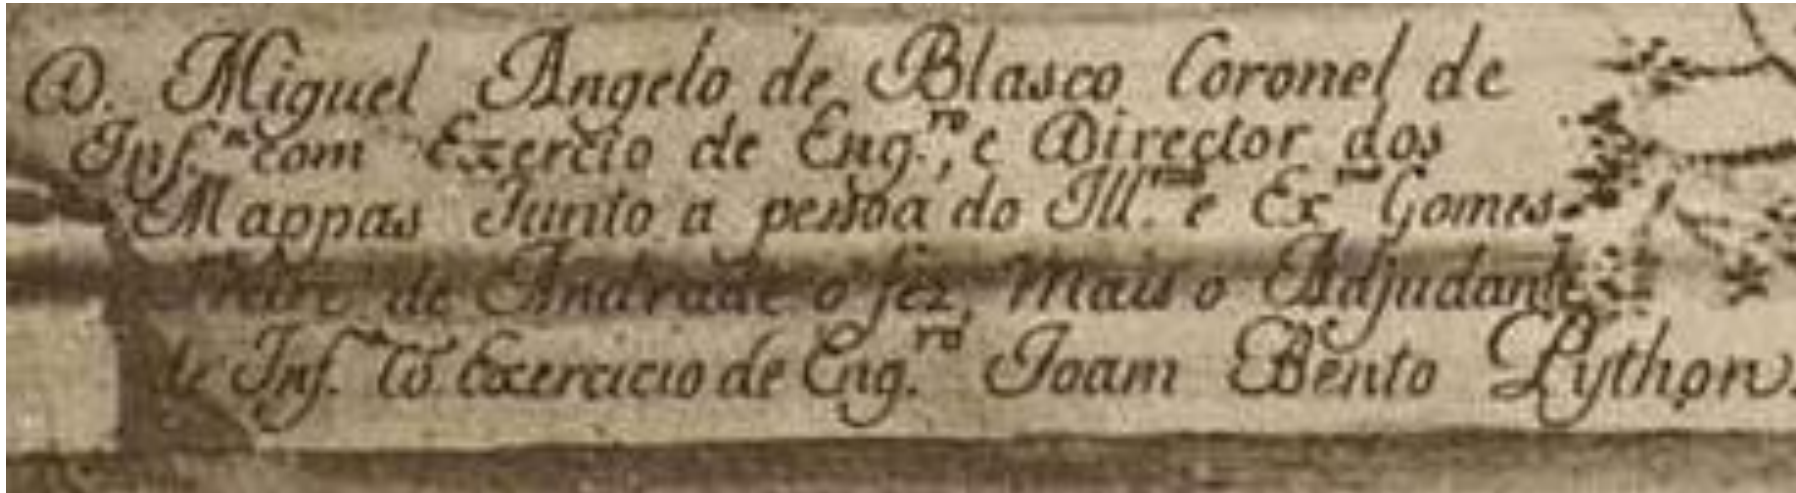 D. Miguel Angelo de Blasco Coronel de
Inf.ª com Exercio de Eng.ro, e Director dos
Mappas Junto a pessoa do Ill.mo e Ex.mo Gomes
Freire de Andrade o fez, Mais o Adjudante
de Inf.ª Cõ Exercicio de Eng.ro Joam Bento Python.